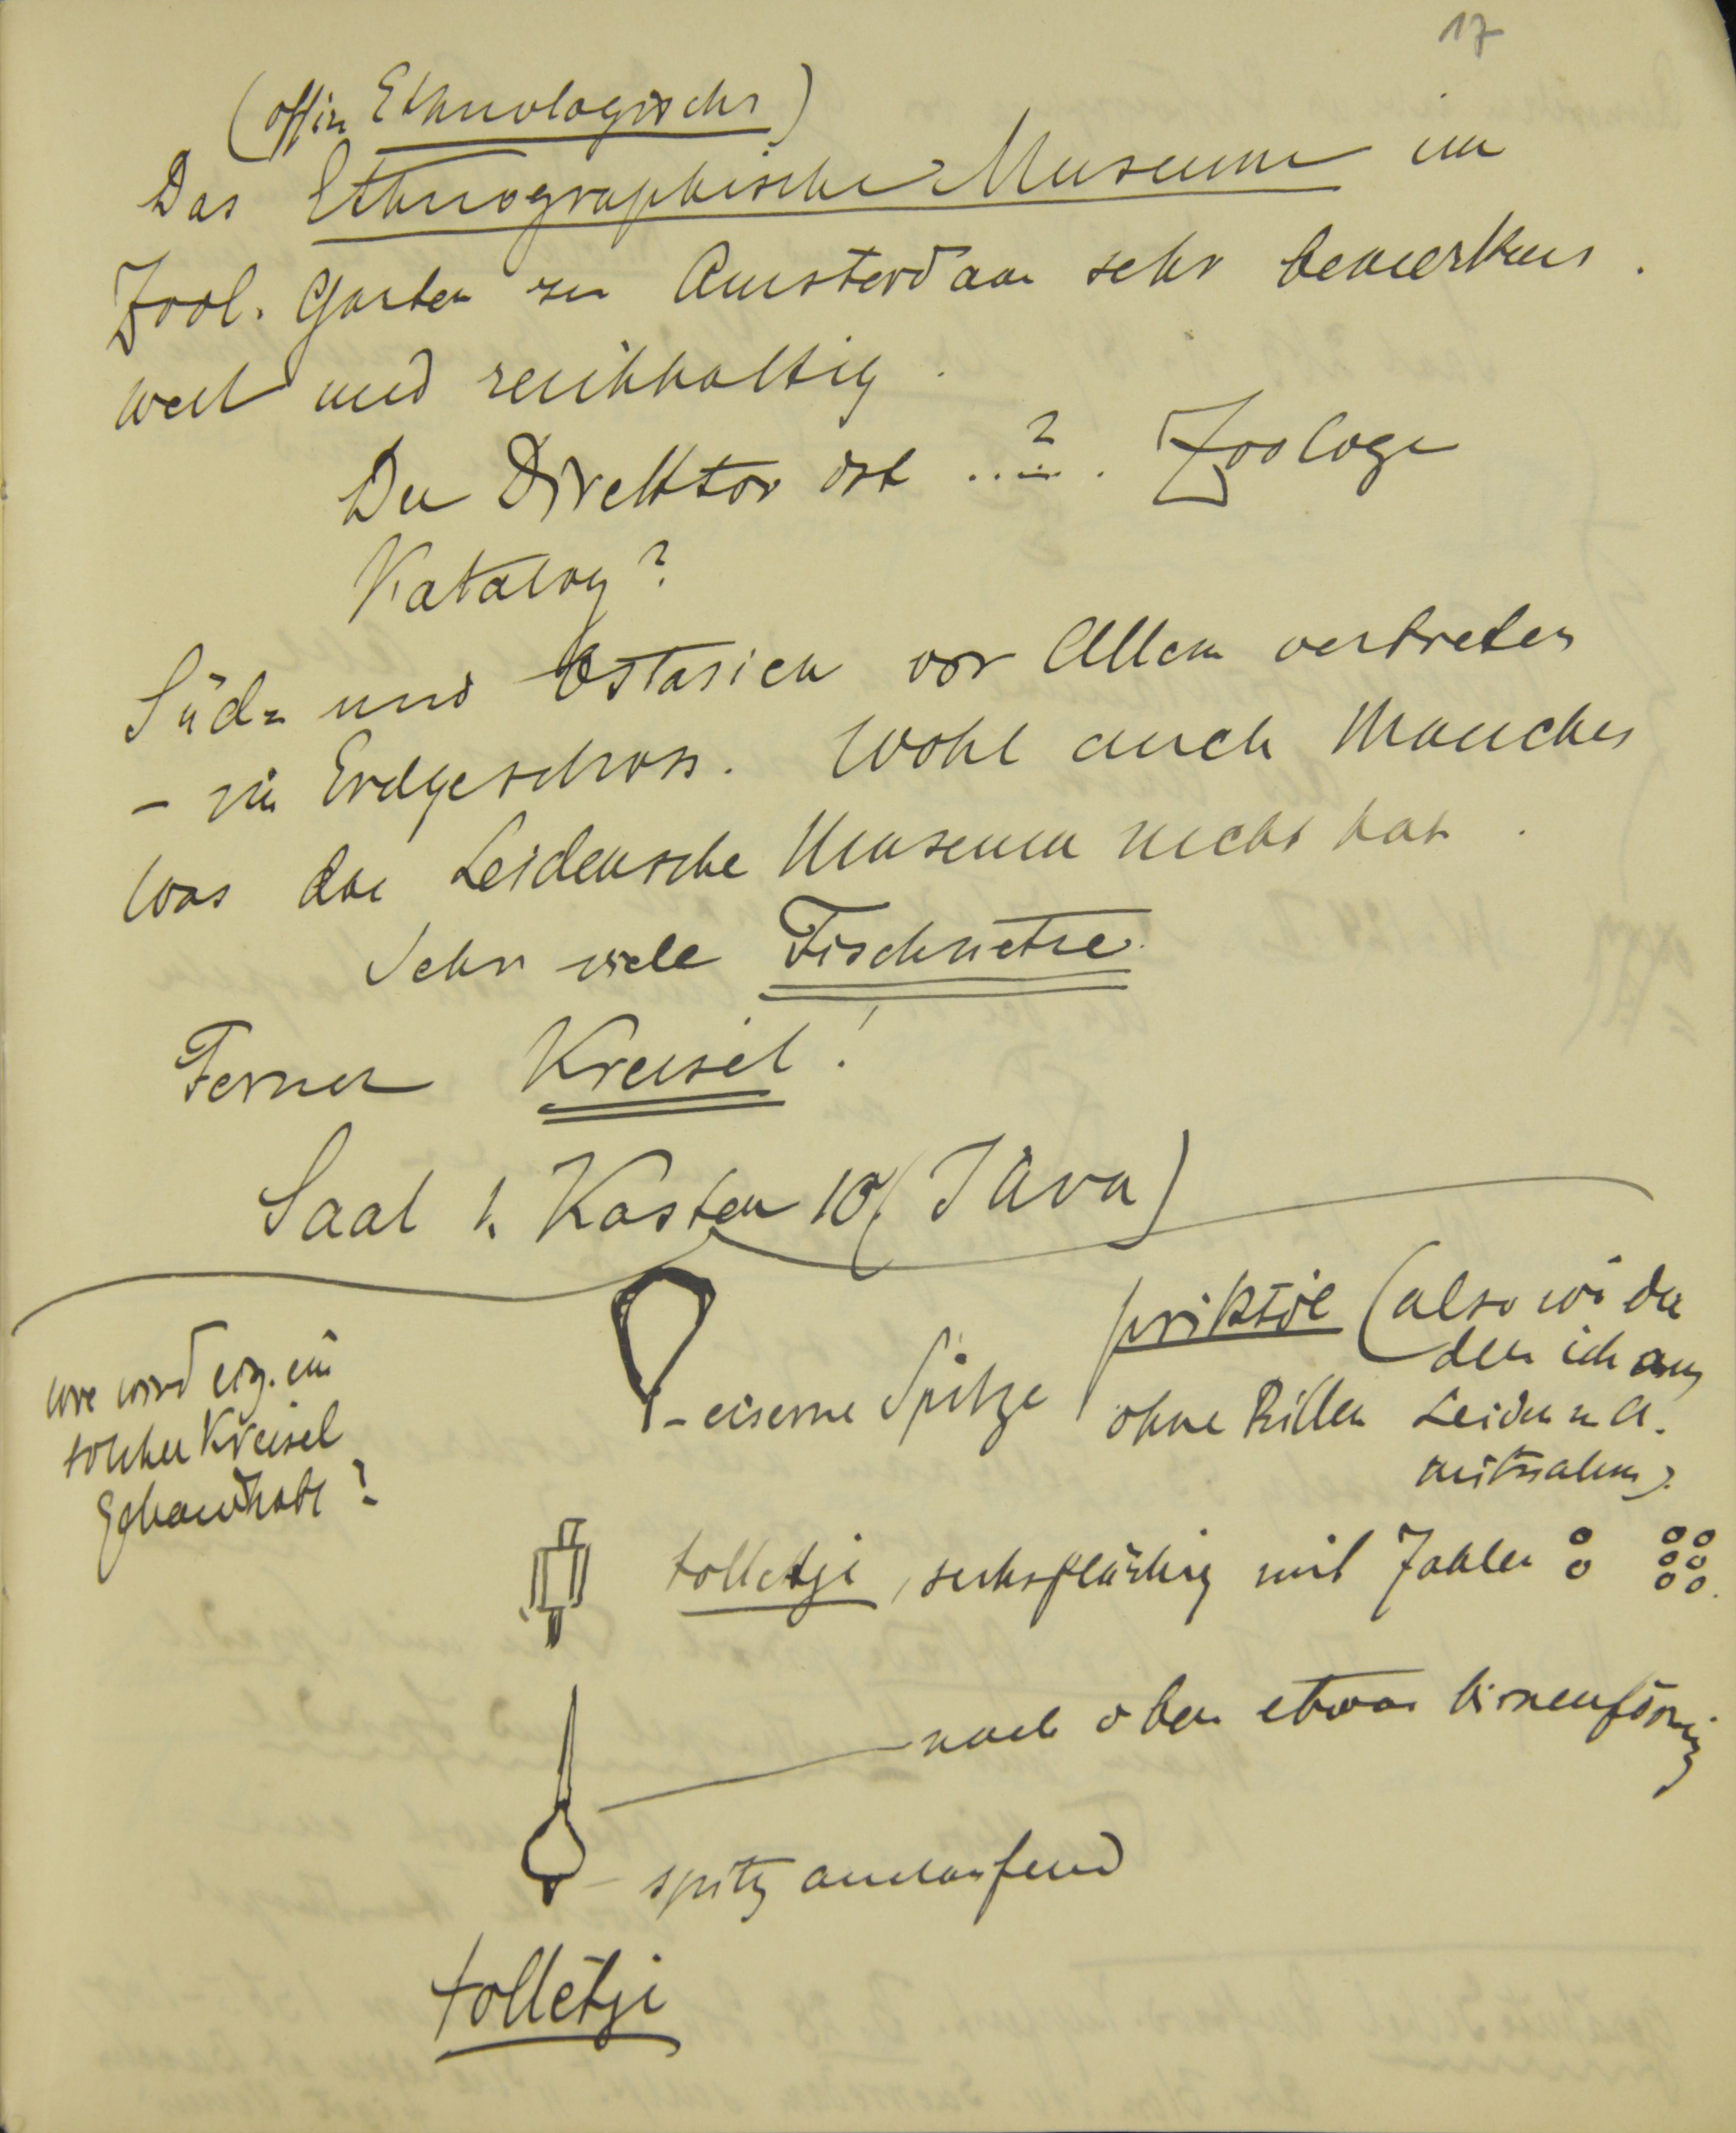 17
(offiz. Ethnologisches)
Das Ethnographische Museum im
Zool. Garten zu Amsterdam sehr bemerkens
wert und reichhaltig.
Der Direktor ist ..?.. Zoologe
Katalog?
Süd- und Ostasien vor Allem vertreten
- im Erdgeschoss. Wohl auch Manches
was das Leidensche Museum nicht hat.
Sehr viele Fischnetze.
Ferner Kreisel!
Saal 1. Kasten 10 (Java)
priktòl (also wie der
den ich aus
- eiserne Spitze ohne Rillen Leiden u. A.
mitnahm).
wie wird eig. ein
solcher Kreisel
gehandhabt?
tolletje, sechsflächig mit Zahlen
nach oben etwas birnenförmig
- spitz auslaufend
tolletje